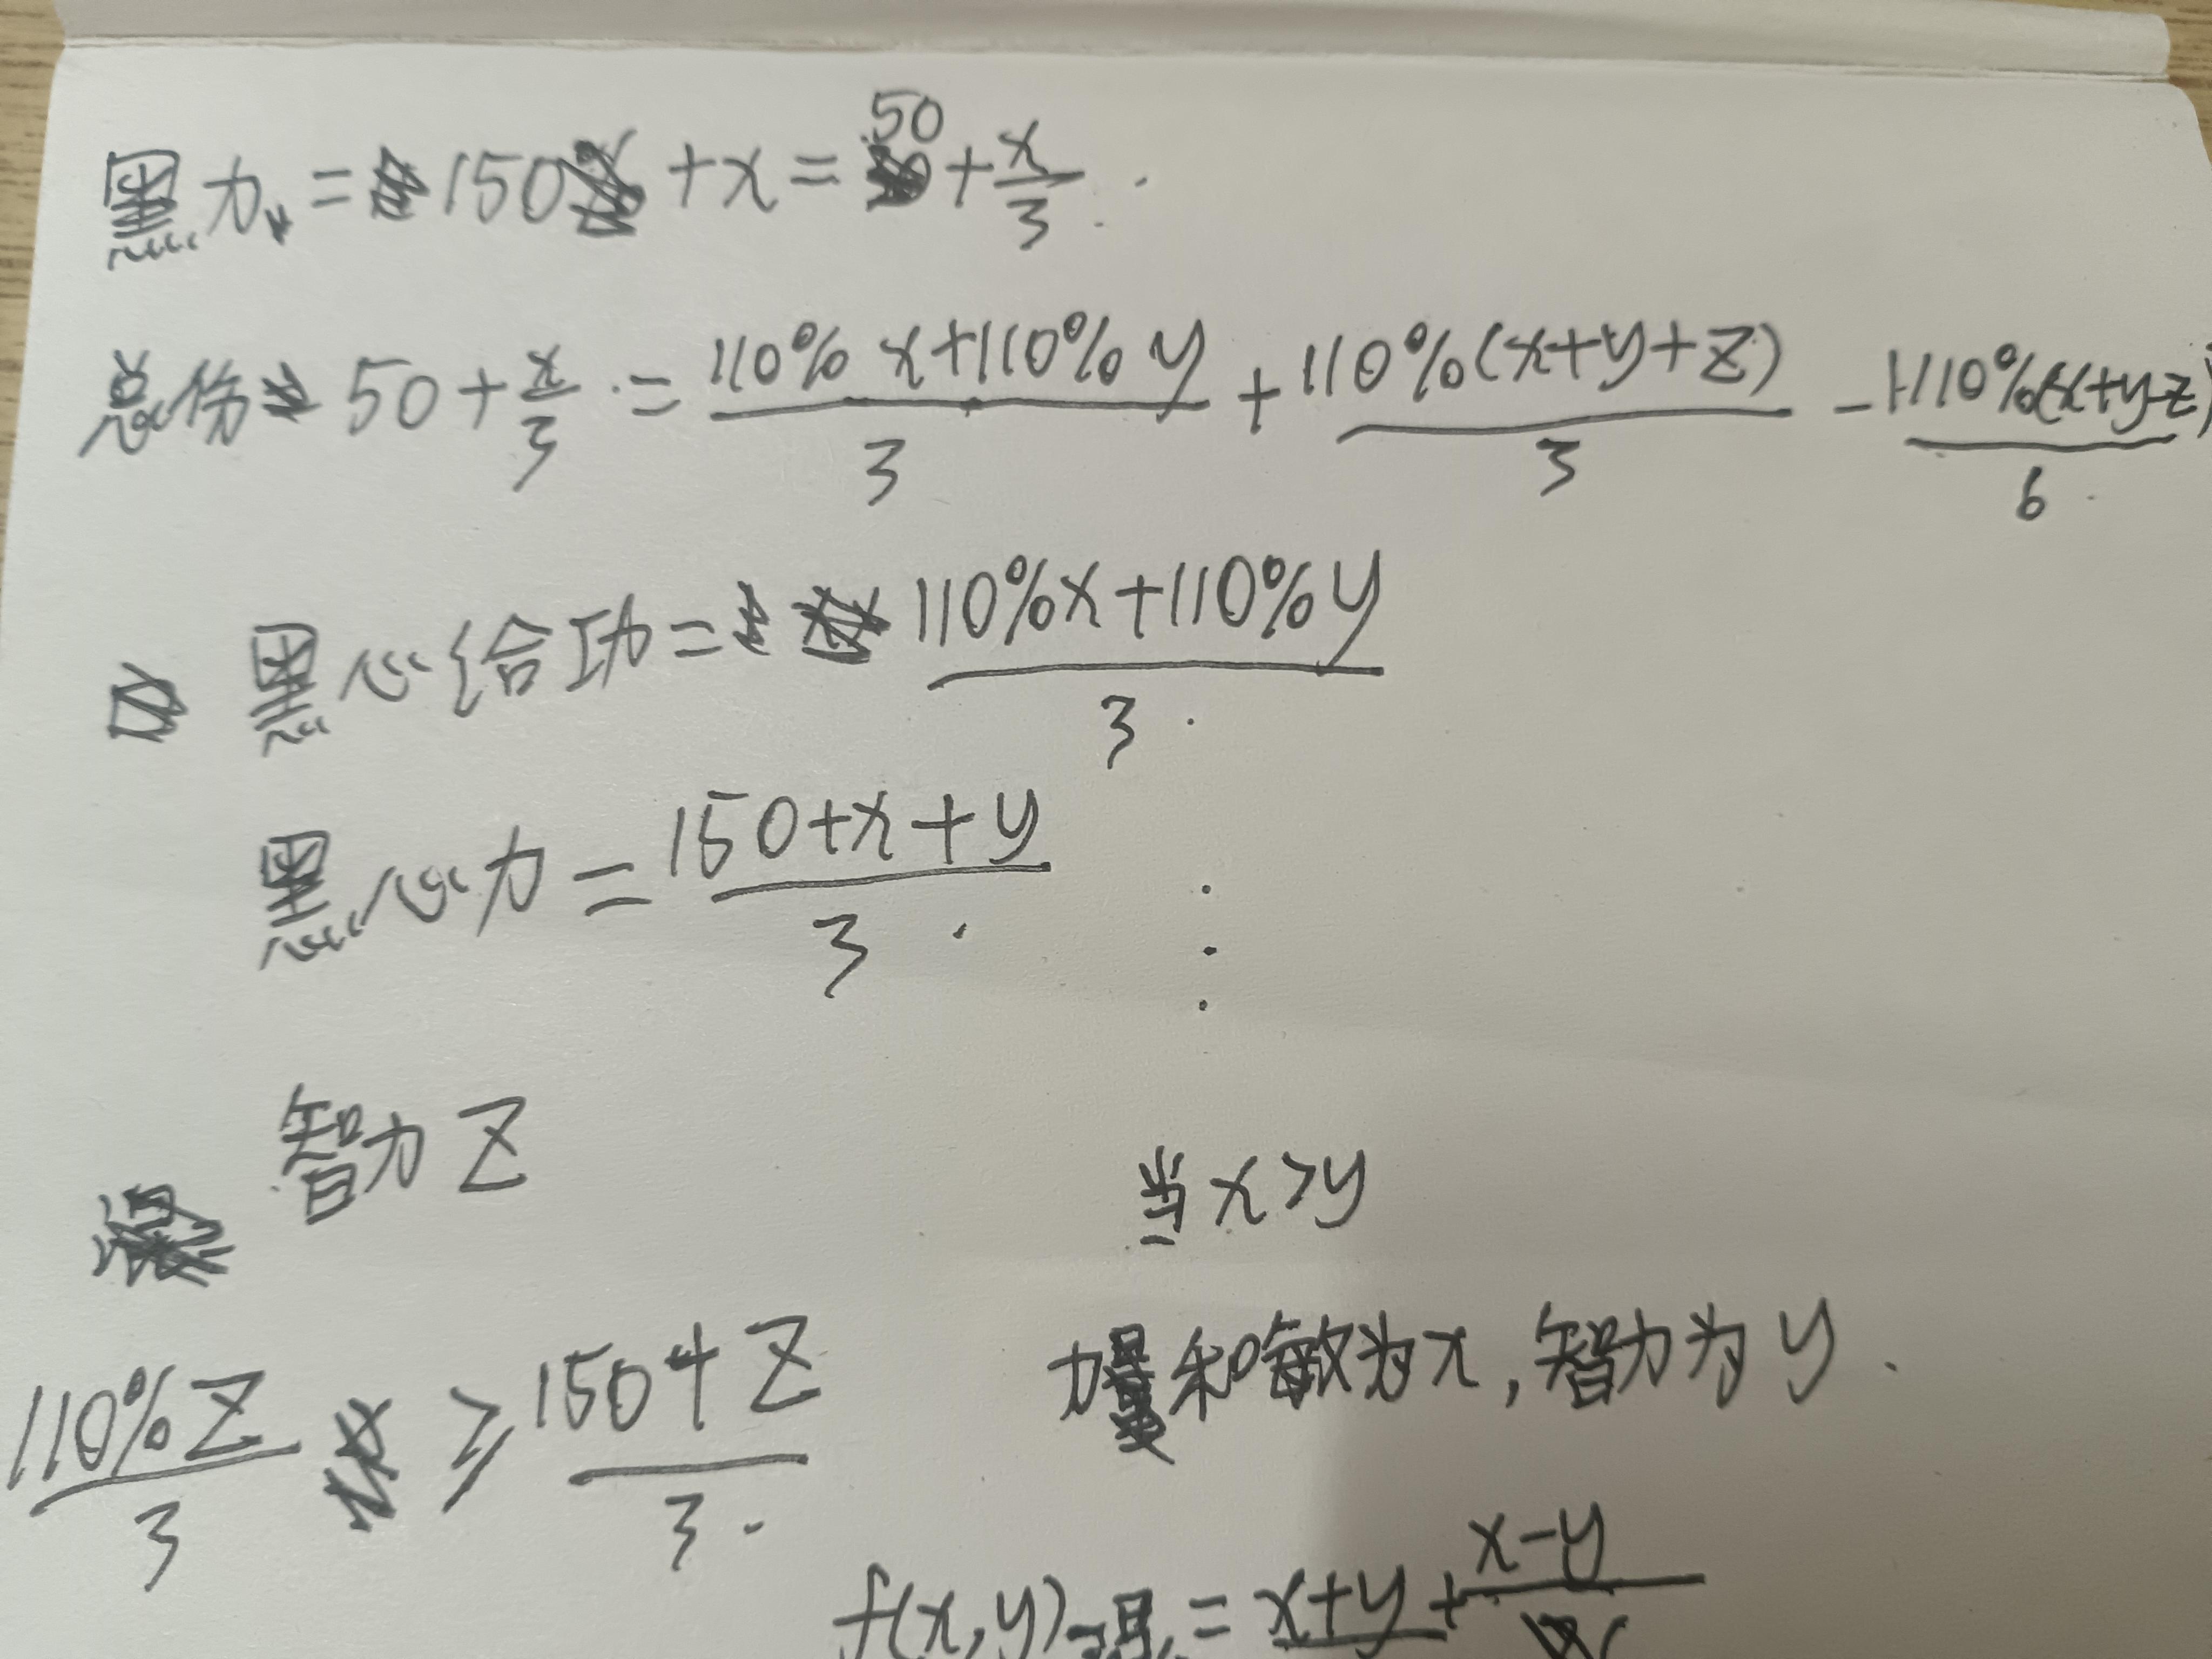 黑力=150+x=50+x/3.
总伤 50+x/3=(110%x+110%y)/3+110%(x+y+z)/3-110%(x+y-z)/6
黑心给功=(110%x+110%y)/3.
黑心力=(150+x+y)/3.
智力Z
110%Z/3≥(150+Z)/3.
当x>y
力量和敏为x,智力为y.
f(x,y)=x+y+x-y